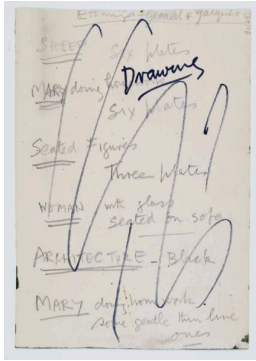 Etchings Gerald & Jacques
SHEEP Six plates
Drawing
MARY doing homework
Six Plates
Seated Figures
Three Plates
WOMAN with glass
seated on sofa
ARCHITECTURE - Black
MARY doing homework
some gentle thin line
ones